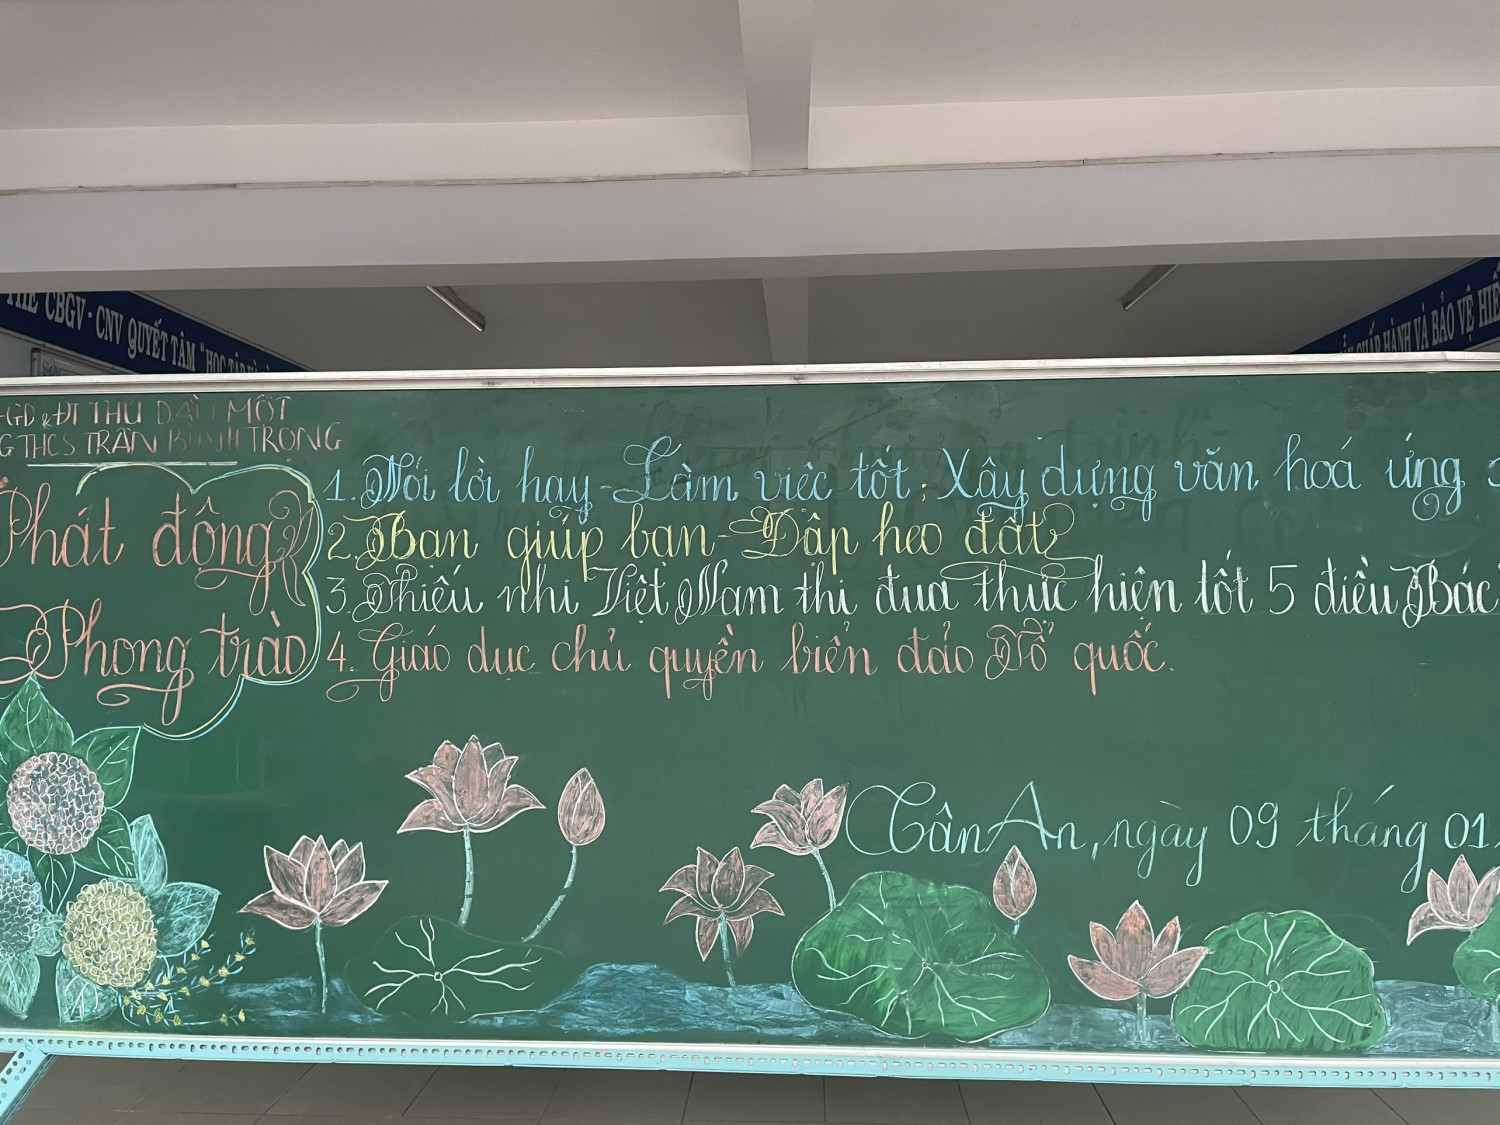 THỂ CBGV - CNV QUYẾT TÂM "HỌC TẬP
CHẤP HÀNH VÀ BẢO VỆ HIẾ
GD & ĐT THỦ DẦU MỘT
G THCS TRẦN BÌNH TRỌNG
Phát động
Phong trào
1. Nói lời hay - Làm việc tốt; Xây dựng văn hoá ứng
2. Bạn giúp bạn - Đập heo đất
3. Thiếu nhi Việt Nam thi đua thực hiện tốt 5 điều Bác
4. Giáo dục chủ quyền biển đảo Tổ quốc.
Tân An, ngày 09 tháng 01